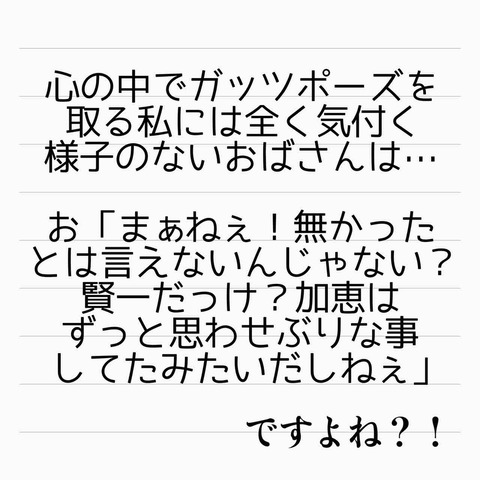 心の中でガッツポーズを
取る私には全く気付く
様子のないおばさんは…
お「まぁねぇ！無かった
とは言えないんじゃない？
賢一だっけ？加恵は
ずっと思わせぶりな事
してたみたいだしねぇ」
ですよね？！